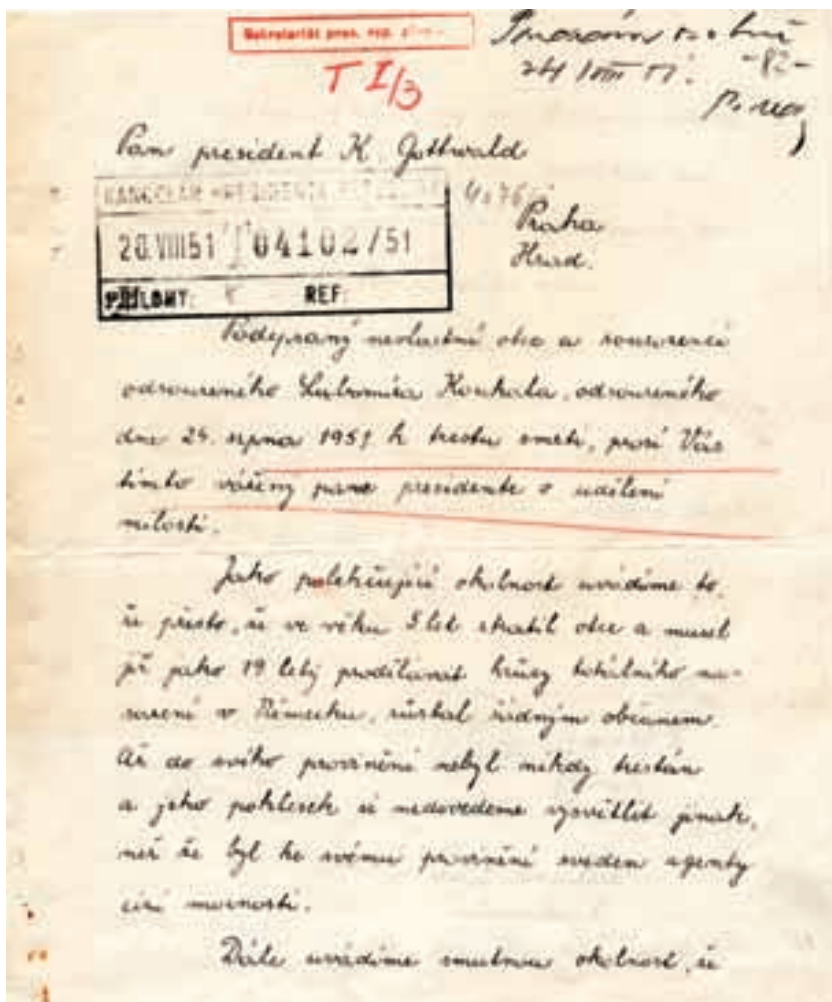 Sekretariát pres. rep.
T I/3
24 VIII 51.
-82-
Pan president K. Gottwald
KANCELÁŘ PRESIDENTA REPUBLIKY
Praha
20.VIII 51 04102/51
Hrad.
PŘÍLOHY: REF:
Podepsaný nevlastní otec a sourozenci
odsouzeného Lubomíra Koukala, odsouzeného
dne 24. srpna 1951 k trestu smrti, prosí Vás
tímto vážený pane presidente o udělení
milosti.
Jako polehčující okolnost uvádíme to,
že přesto, že ve věku 5 let ztratil otce a musel
již jako 19 letý prodělávat hrůzy totálního na-
sazení v Německu, zůstal řádným občanem.
Až do svého provinění nebyl nikdy trestán
a jeho poklesek si nedovedeme vysvětlit jinak,
než že byl ke svému provinění sveden agenty
cizí mocnosti.
Dále uvádíme smutnou okolnost, že